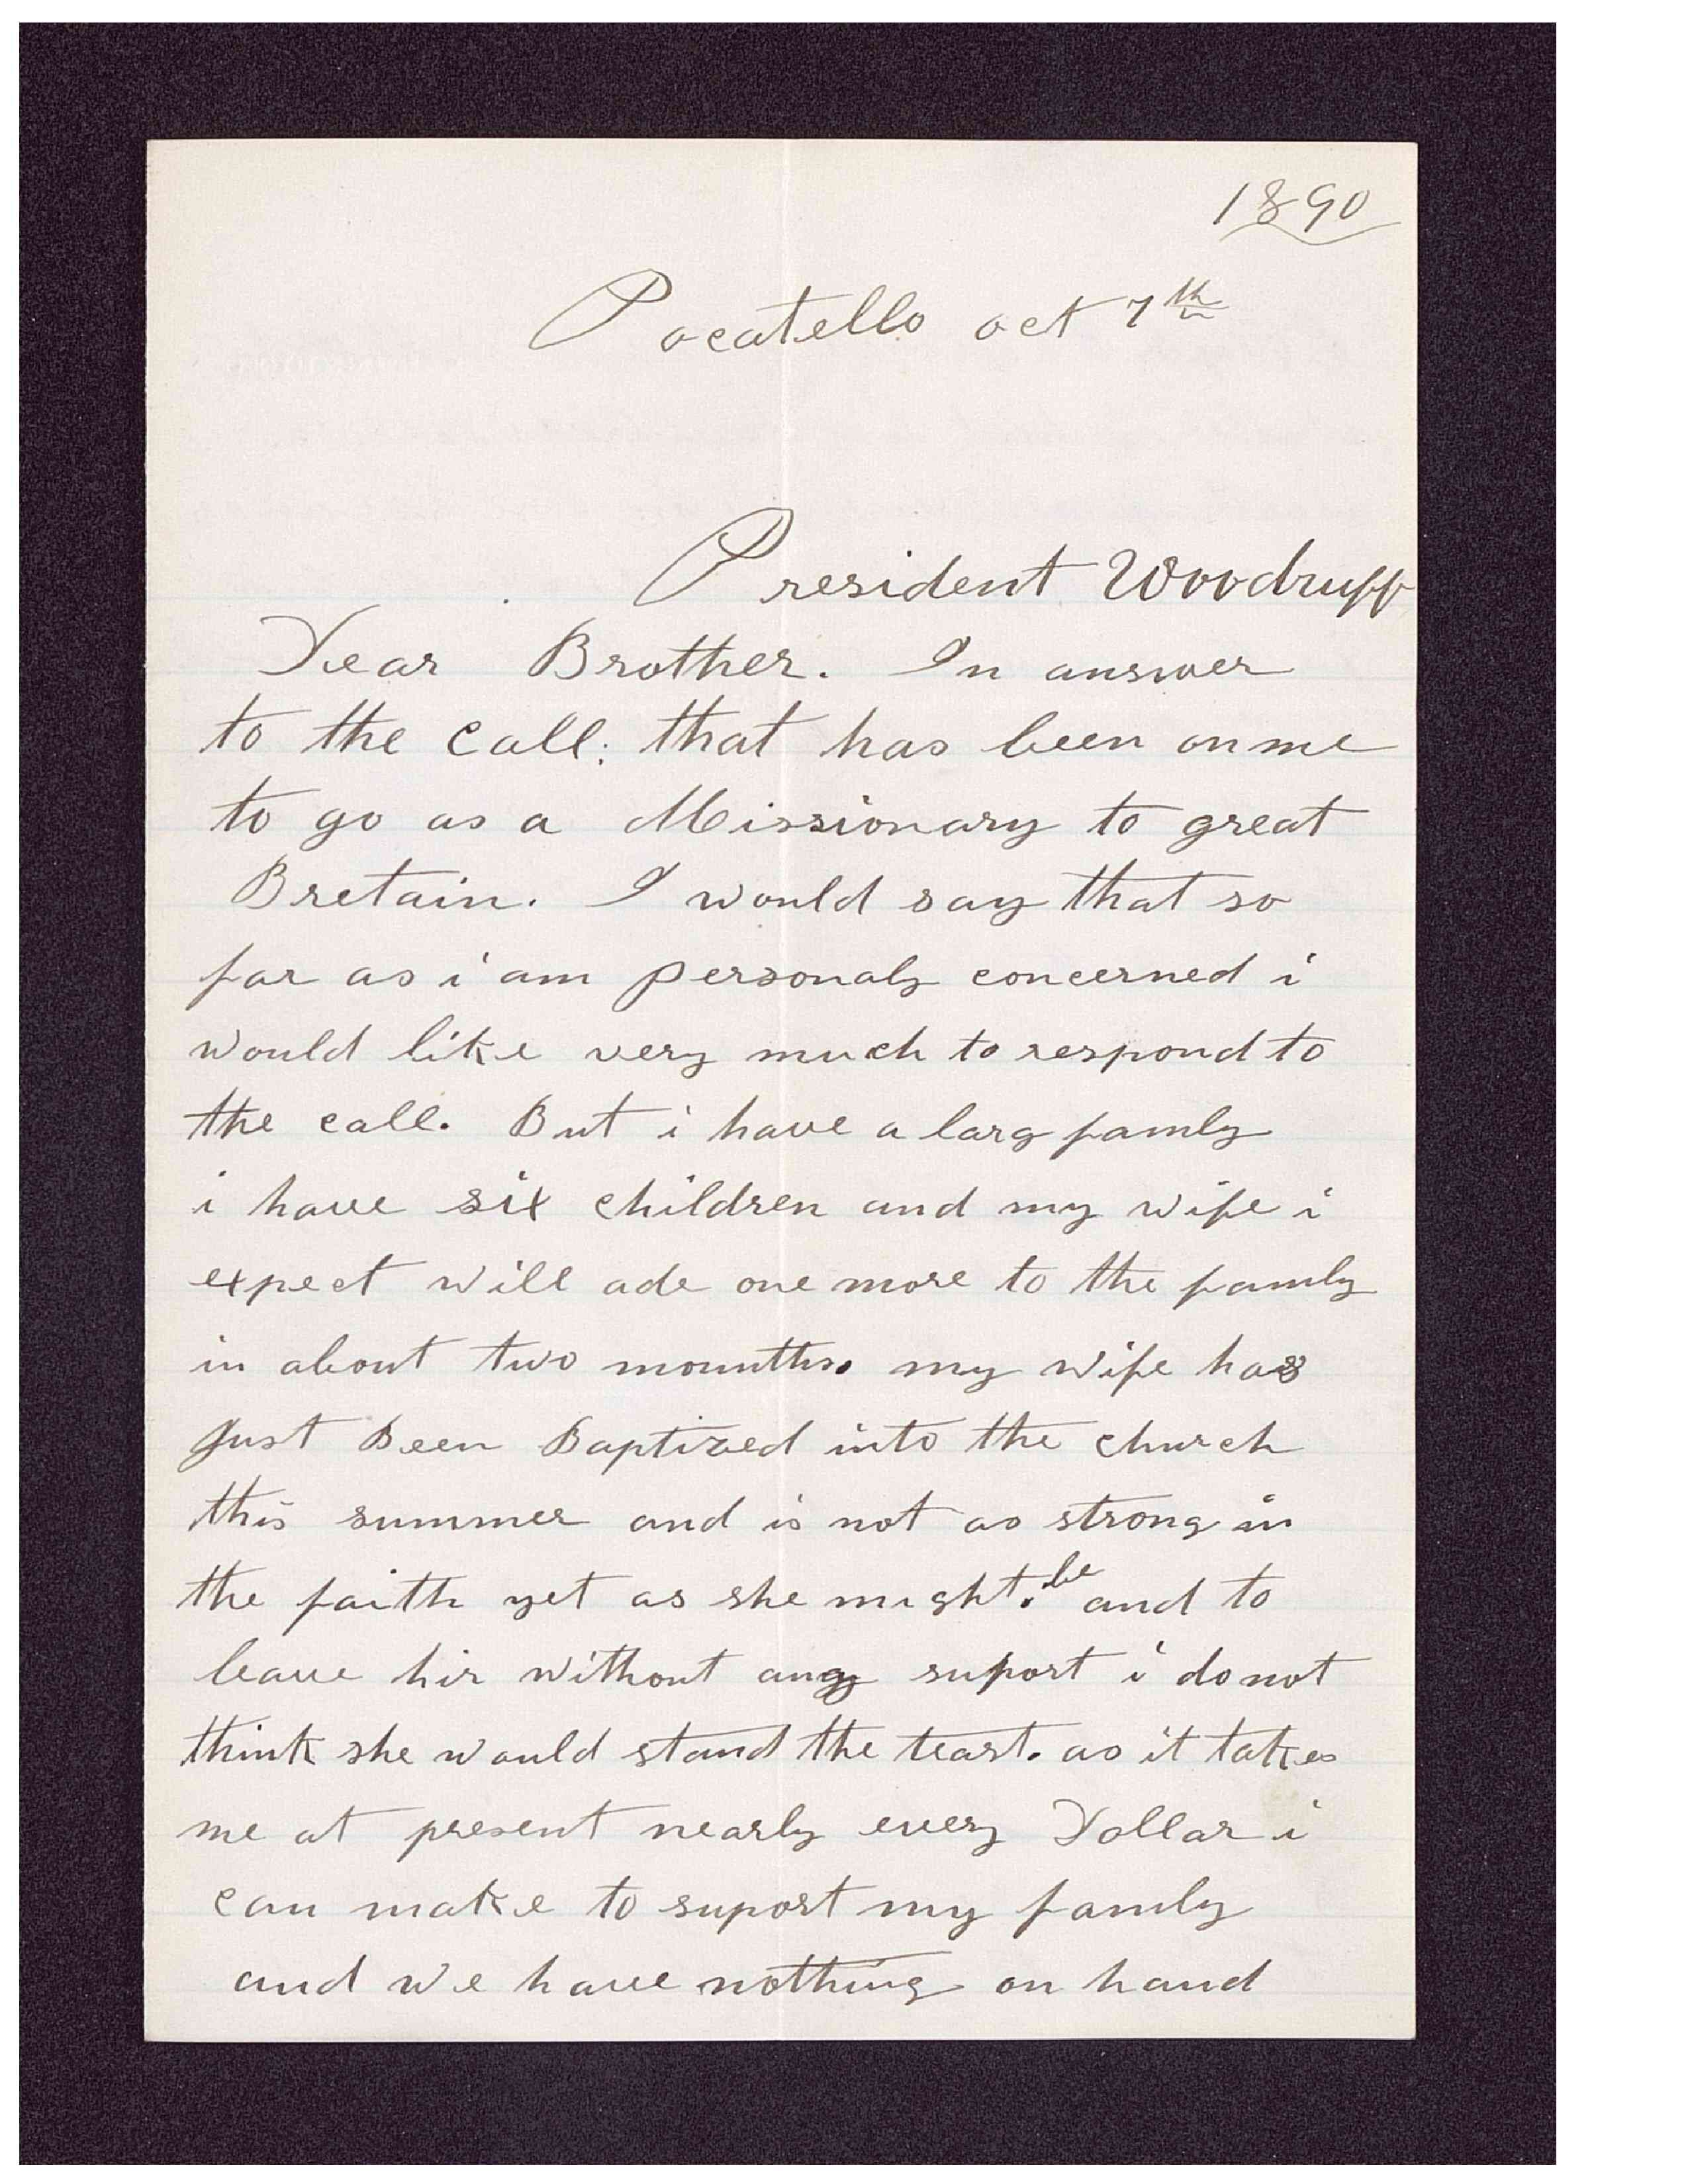 1890
Pocatello oct 7th
President Woodruff
Dear Brother. In answer
to the call. that has been on me
to go as a Missionary to great
Bretain. I would say that so
far as i am personaly concerned i
would like very much to respond to
the call. But i have a larg famly
i have six children and my wife i
expect will ade one more to the family
in about two mounths. my wife has
just Been Baptized into the church
this summer and is not as strong in
the faith yet as she might. be and to
leave hir without any suport i do not
think she would stand the teast. as it takes
me at present nearly every Dollar i
can make to suport my family
and we have nothing on hand